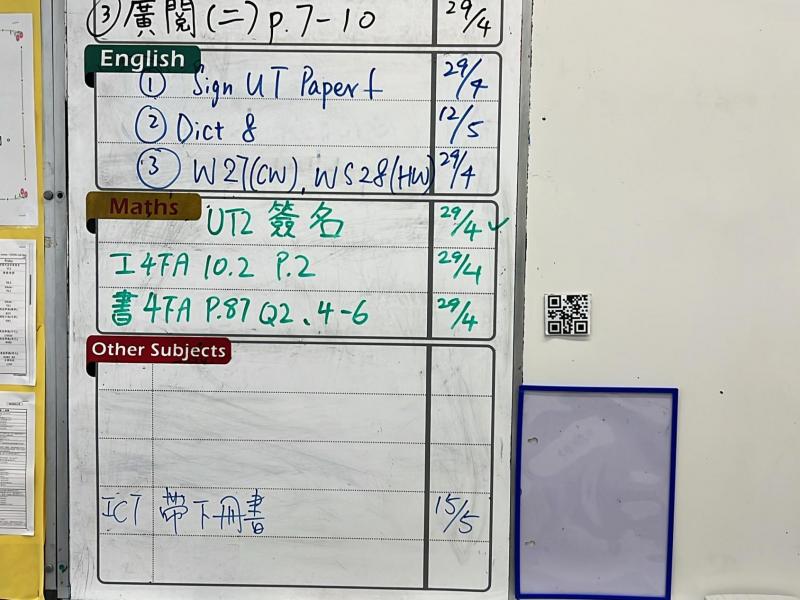 ③ 廣閱(二) p.7-10 29/4
English
① Sign UT Paper 1 29/4
② Dict 8 12/5
③ W27(CW), WS28(HW) 29/4
Maths
UT2 簽名 29/4 ✓
工4TA 10.2 P.2 29/4
書4TA P.87 Q2、4-6 29/4
Other Subjects
ICT 帶下冊書 15/5